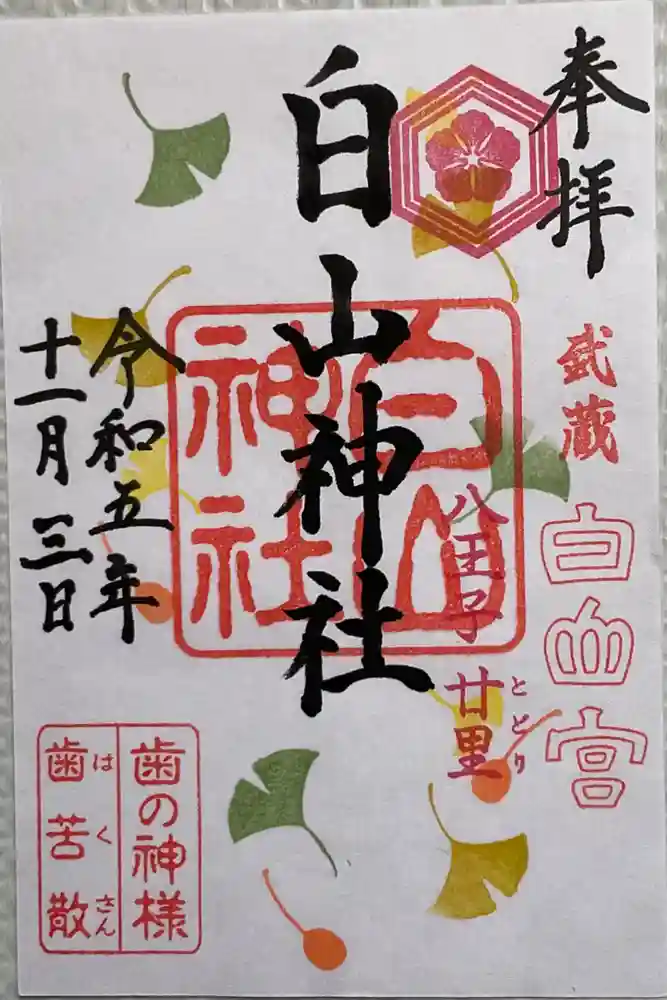 奉拝
武蔵
白山宮
八王子 廿里
ととり
白山神社
白山
神社
令和五年
十一月三日
歯の神様
歯苦散
はくさん